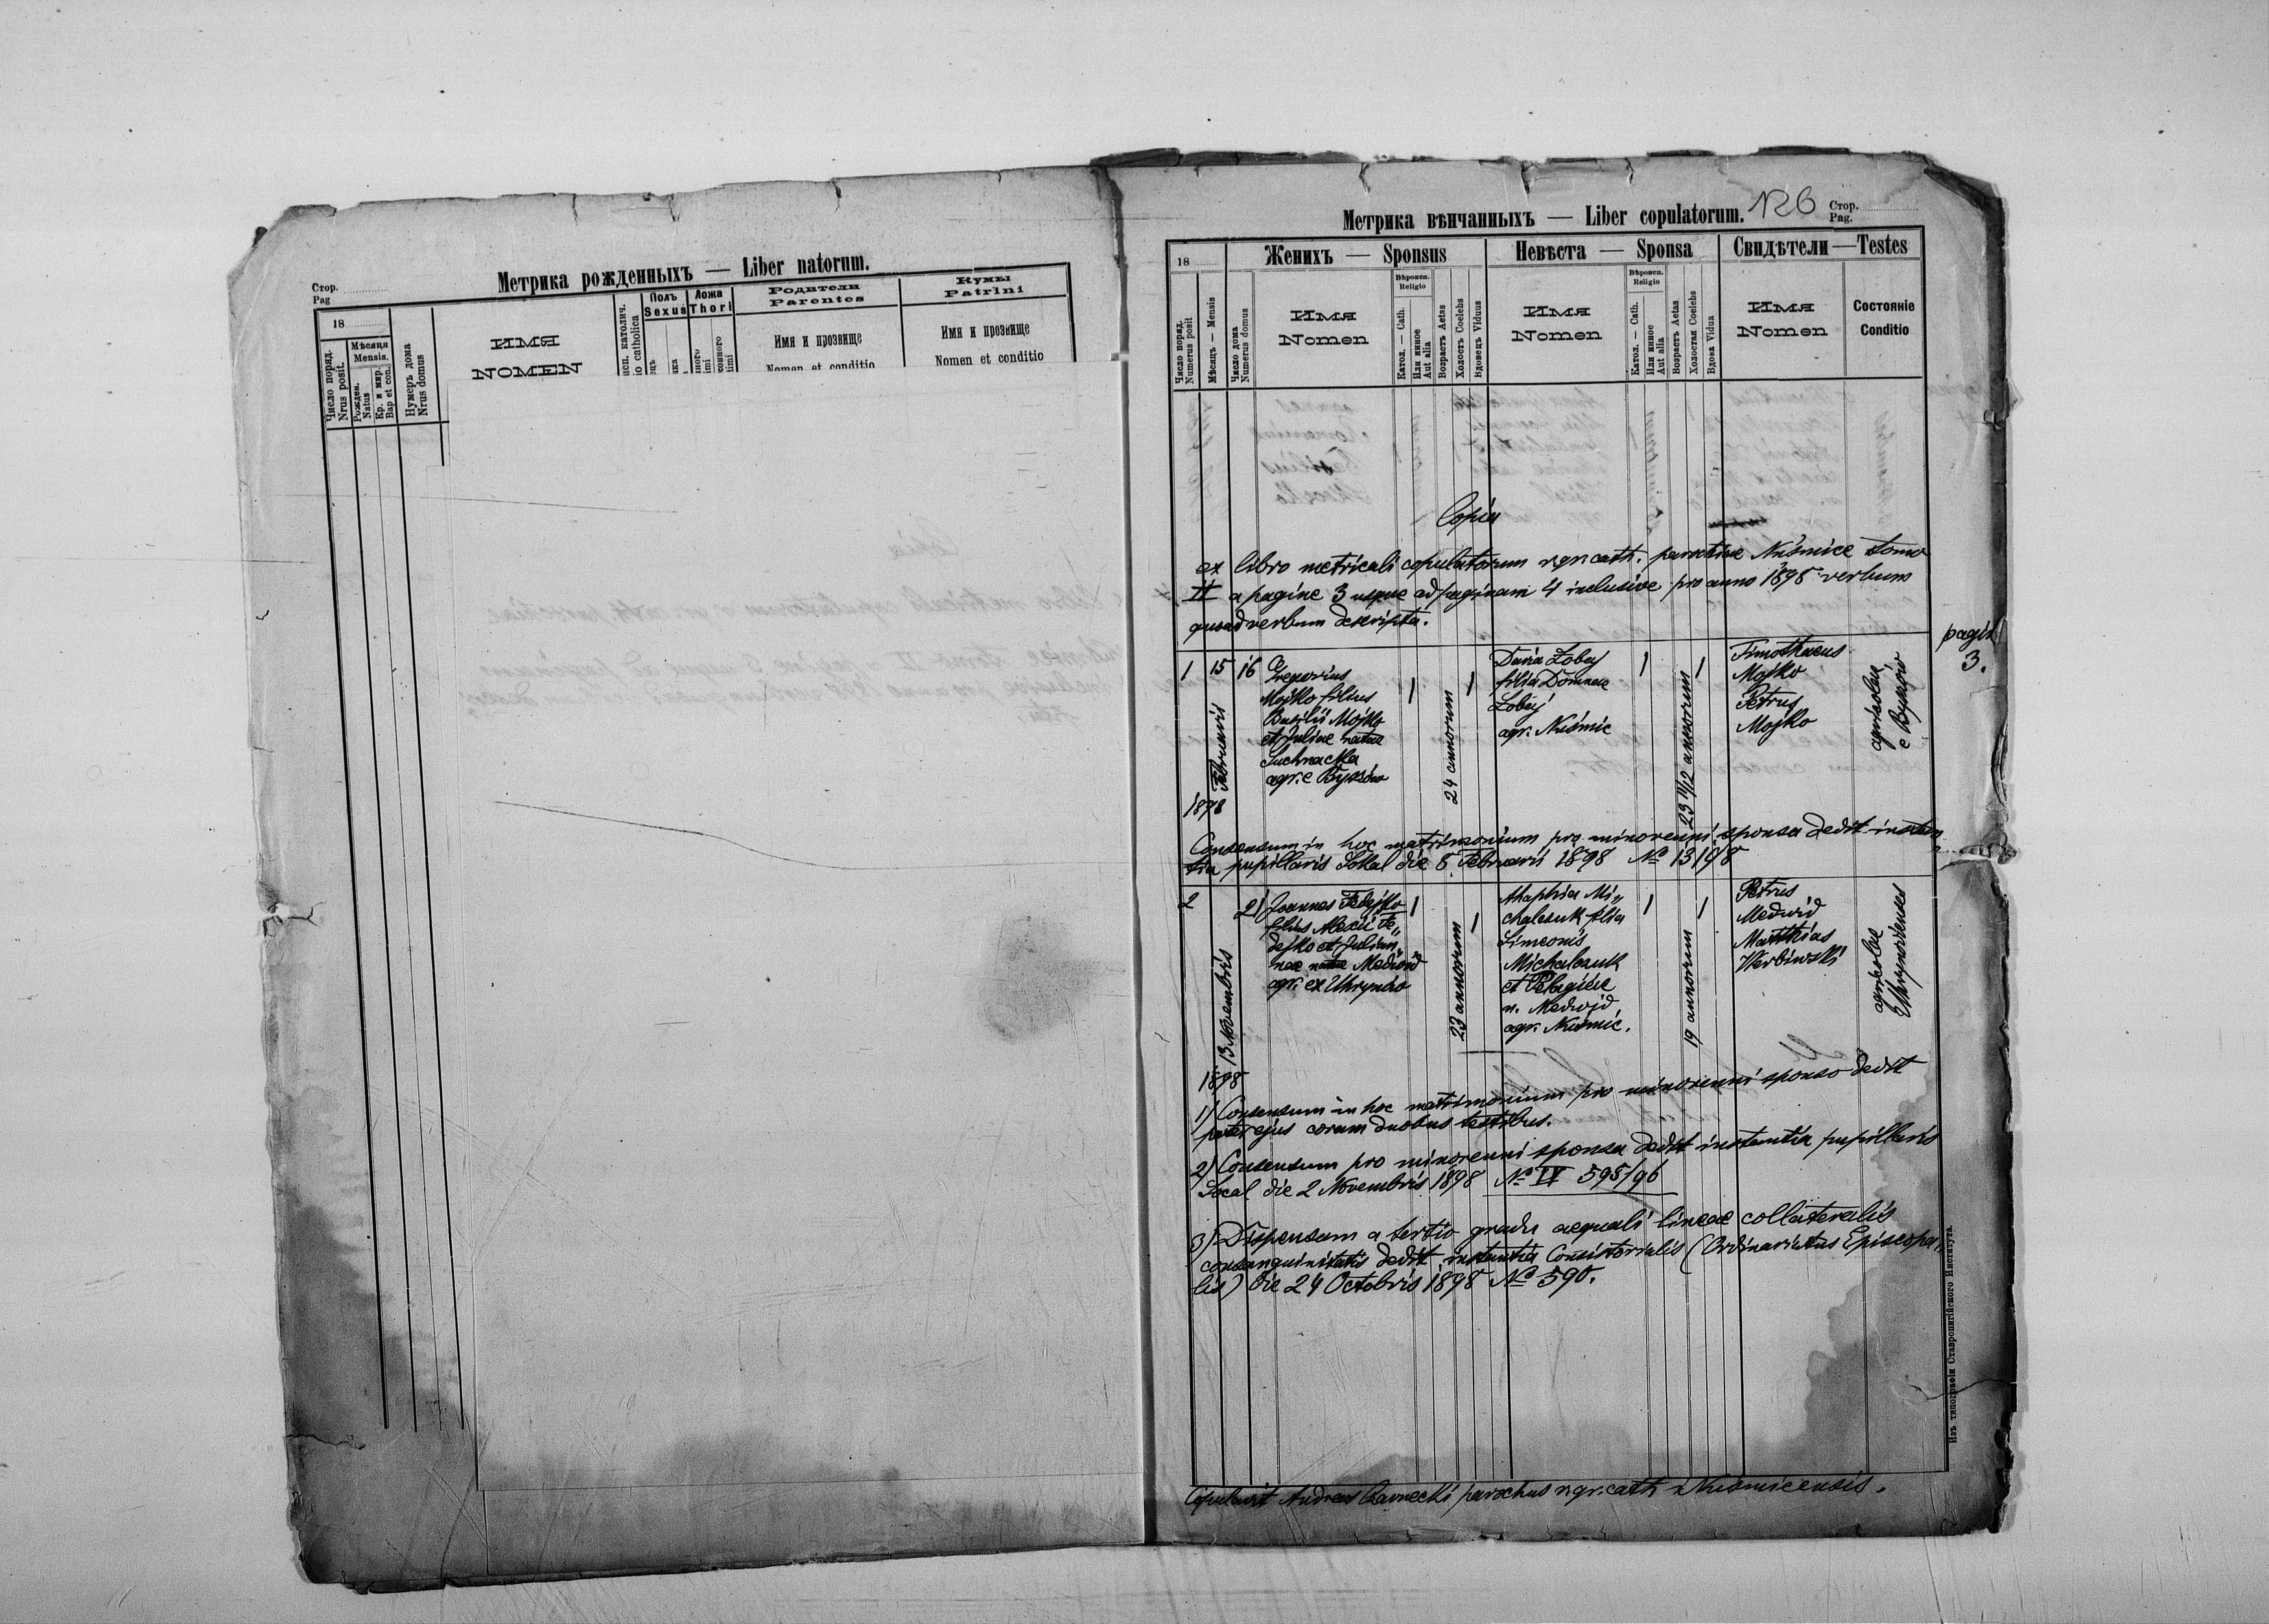 Стор.
Pag
Метрика рожденныхъ — Liber natorum.
18
Число поряд.
Nrus posit.
Мѣсяця
Mensis.
Рожден.
Natus
Кр. и мир.
Bap et con.
Нумеръ дома
Nrus domus
ИМЯ
NOMEN
исп. католич.
io catholica
Полъ
Sexus
Ложа
Thori
Родители
Parentes
Имя и прозвище
Nomen et conditio
Кумы
Patrini
Имя и прозвище
Nomen et conditio
Метрика вѣнчанныхъ — Liber copulatorum.
126
Стор.
Pag.
18
Женихъ — Sponsus
Невѣста — Sponsa
Свидѣтели — Testes
Число поряд.
Numerus posit
Мѣсяцъ — Mensis
Число дома
Numerus domus
Имя
Nomen
Вѣроисп.
Religio
Катол. — Cath.
Или инное
Aut alia
Возрастъ Aetas
Холостъ Coelebs
Вдовецъ Viduus
Имя
Nomen
Вѣроисп.
Religio
Катол. — Cath.
Или инное
Aut alia
Возрастъ Aetas
Холостая Coelebs
Вдова Vidua
Имя
Nomen
Состояніе
Conditio
Copia
ex libro metricali copulatorum r. gr. cath. parochiae Nuśmice tomo
II a pagine 3 usque ad paginam 4 inclusive pro anno 1898 verbum
quoad verbum descripta.
pagin
3.
1
15
Februarii
1898
16
Gregorius
Mojko filius
Basilii Mojko
et Juliae natae
Suchnacka
agr. e Byszów
1
24 annorum
1
Daria Lobaj
filia Domnae
Lobaj
agr. Nuśmic
1
23 11/12 annorum
1
Timothaeus
Mojko
Petrus
Mojko
agricolae
e Byszów
Consensum in hoc matrimonium pro minorenni sponsa dedit instan„
tia pupillaris Sokal die 8 Februarii 1898 No 13/98
2
13 Novembris
1898
21
Joannes Fedejko
filius Alexii Fe„
dejko et Julian„
nae natae Medwid
agr. ex Uhrynów
1
23 annorum
1
Ahaphia Mi„
chalczuk filia
Simeonis
Michalczuk
et Pelagiae
n. Medwid
agr. Nuśmic.
1
19 annorum
1
Petrus
Medwid
Matthias
Werbiwski
agricolae
Uhrynovienses
1) Consensum in hoc matrimonium pro minorenni sponso dedit
pater ejus coram duobus testibus.
2) Consensum pro minorenni sponsa dedit instantia pupillaris
Socal die 2 Novembris 1898 No IV 598/96
3) Dispensam a tertio gradu aequali lineae collateralis
consanguinitatis dedit instantia Consistorialis (Ordinariatus Episcopa„
lis) die 24 Octobris 1898 No 590.
Copulavit Andreas Czarnecki parochus r. gr. cath. Nuśmicensis.
Изъ типографіи Ставропигійского Института.